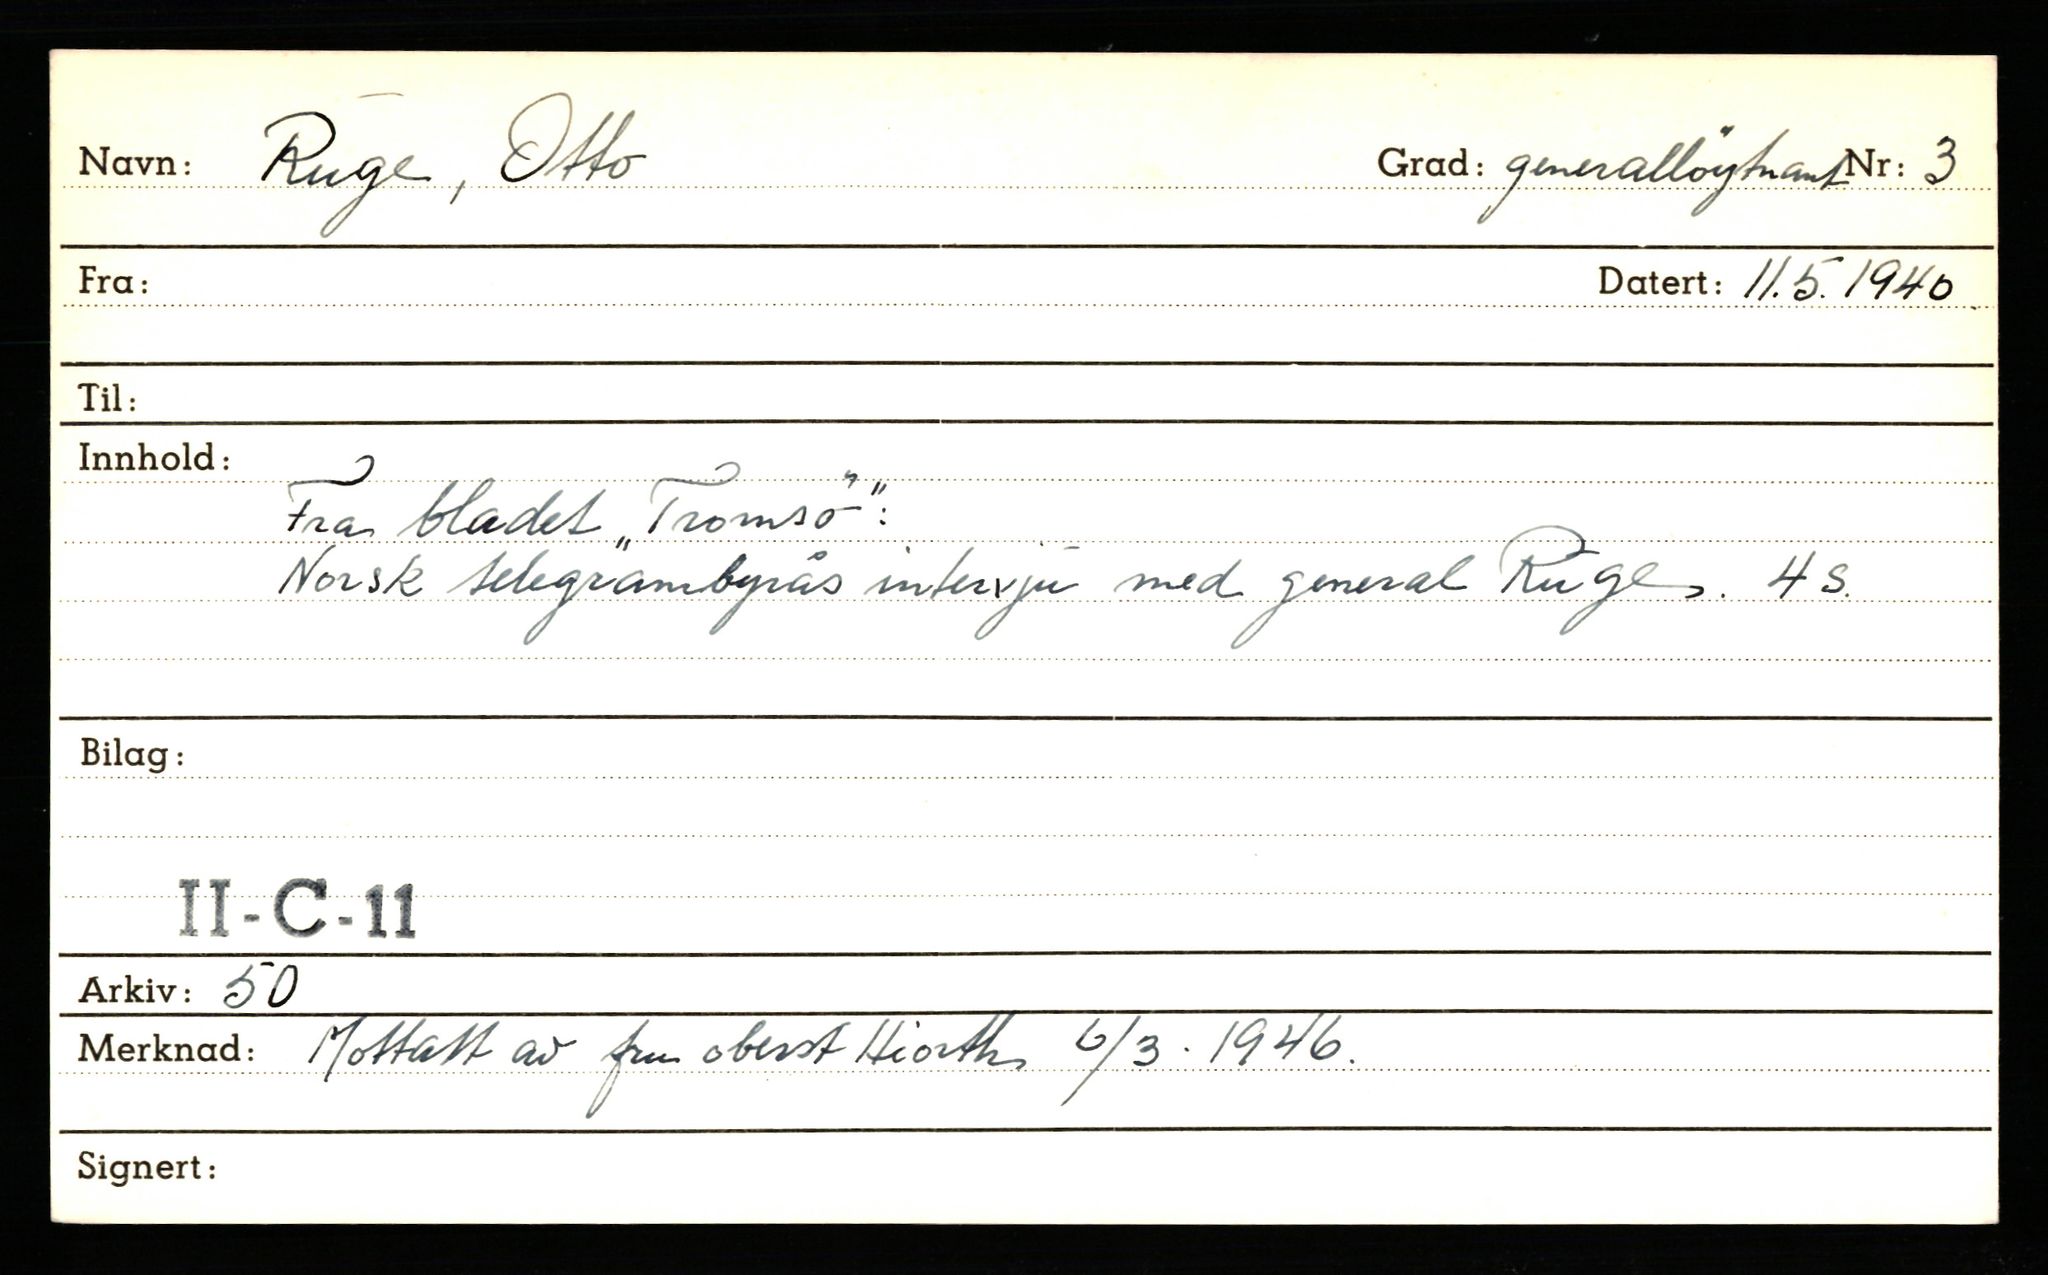 Navn: Ruge, Otto Grad: generallöytnant Nr: 3
Fra: Datert: 11.5.1940.
Til:
Innhold:
Fra bladet „Tromsö":
Norsk telegrambyrås intervju med general Ruge. 4 s.
Bilag:
II-C-11
Arkiv: 50
Merknad: Mottatt av fru oberst Hiorth 6/3. 1946.
Signert: